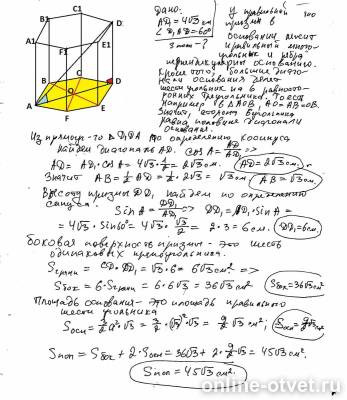 C1
B1
D1
A1
F1
E1
B
C
A
O
D
F
E
Дано:
AD₁=4√3 см
∠D₁AD=60°
Sполн - ?
У правильной
призмы в
основании лежит
правильный много-
угольник и ребра
перпендикулярны основанию.
Кроме того, большие диаго-
нали основания делят
шестиугольник на 6 равносто-
ронних треугольников. То есть
например в ΔAOB, AO=AB=OB.
Значит, сторона
равна половине диагонали
основания.
Из прямоуг-го ΔD₁DA по определению косинуса
найдем диагональ AD. cosA = AD/AD₁ =>
AD = AD₁·cosA = 4√3·1/2 = 2√3 см. AD=2√3 см.
Значит AB = 1/2 AD = 1/2·2√3 = √3 см. AB=√3 см.
Высоту призмы DD₁ найдем по определению
синуса. SinA = DD₁/AD₁ => DD₁ = AD₁·sinA =
= 4√3·Sin60° = 4√3·√3/2 = 2·3 = 6 см. DD₁=6 см.
Боковая поверхность призмы - это шесть
одинаковых прямоугольников.
Sграни = CD·DD₁ = √3·6 = 6√3 см² =>
Sбок = 6·Sграни = 6·6√3 = 36√3 см² Sбок=36√3 см²
Площадь основания - это площадь правильного
шестиугольника
Sосн = 3/2 a²√3 = 3/2·(√3)²·√3 = 9/2 √3 см². Sосн=9/2√3 см²
Sпол = Sбок + 2·Sосн = 36√3 + 2·9/2 √3 = 45√3 см².
Sпол = 45√3 см².
online-otvet.ru